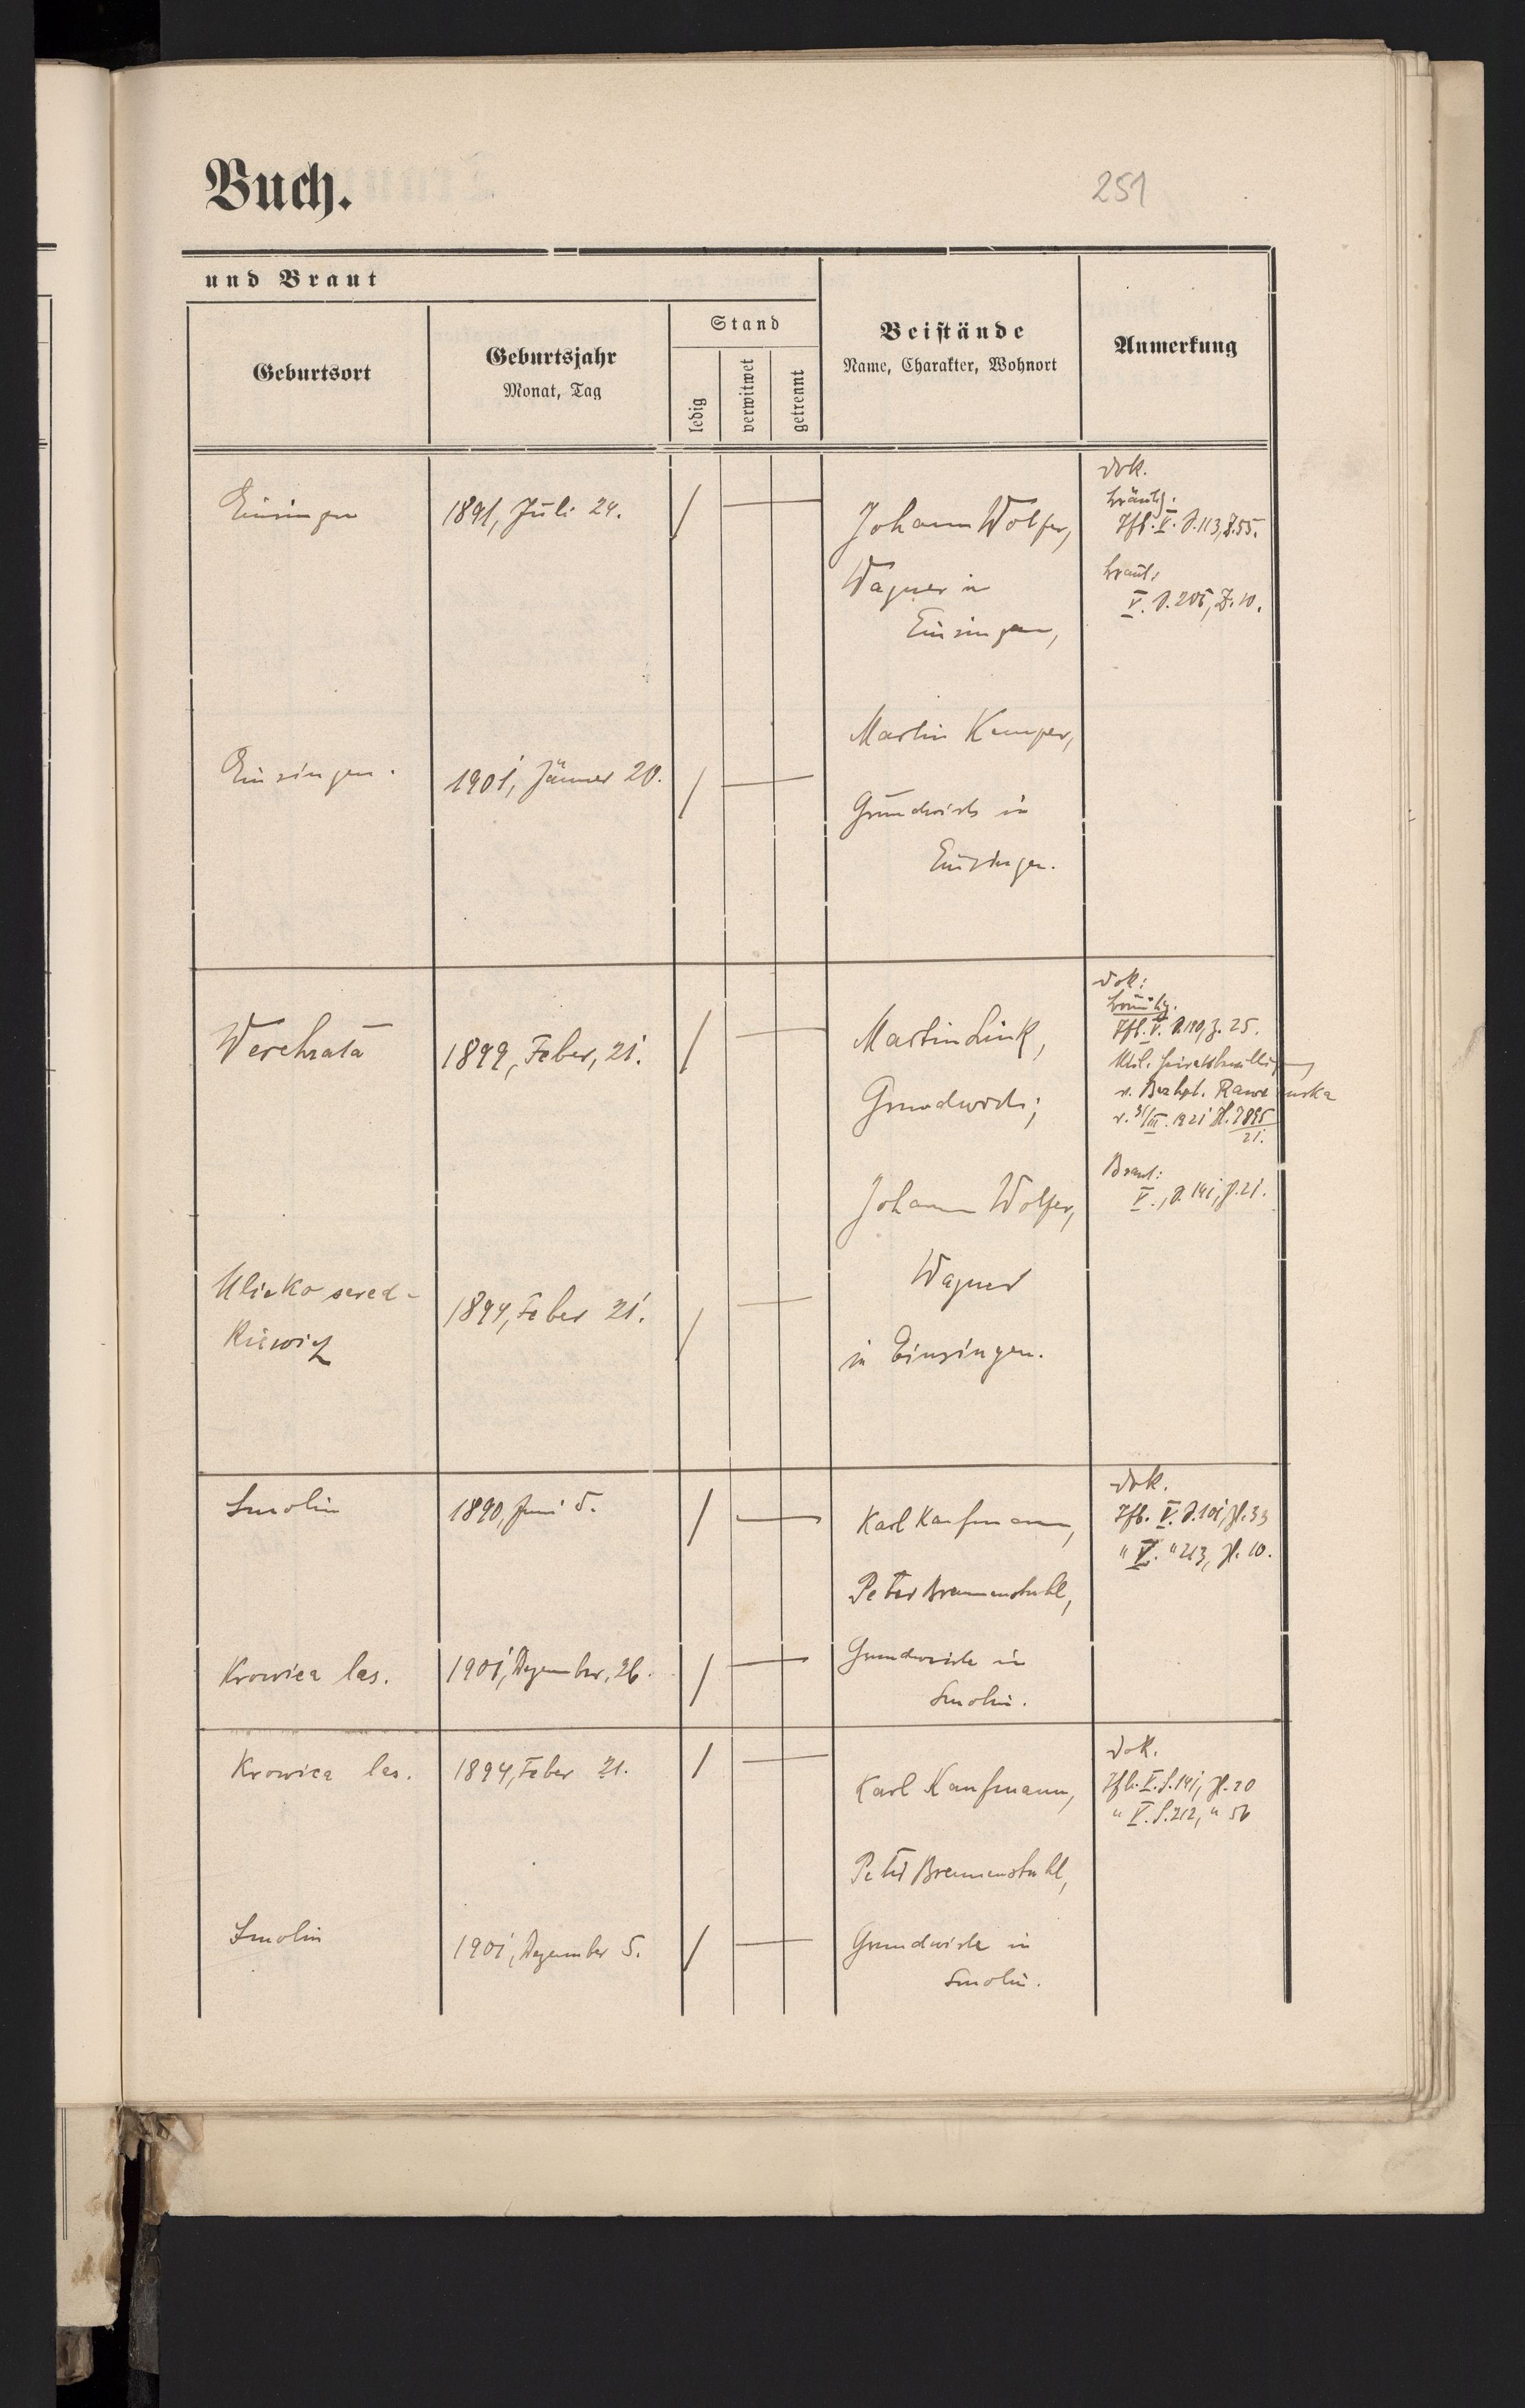 Buch.
251
und Braut
Geburtsort
Geburtsjahr
Monat, Tag
Stand
ledig
verwitwet
getrennt
Beistände
Name, Charakter, Wohnort
Anmerkung
Einsingen
1891, Juli 24.
Johann Wolfer,
Wagner in
Einsingen,
dok.
bräutg.
Tfb. V. S. 113, Z. 55.
braut:
V. S. 205, Z. 10.
Einsingen.
1901, Jänner 20.
Martin Kemper,
Grundwirth in
Einsingen.
Werchrata
1899, Feber, 21.
Martin Link,
Grundwirth;
dok:
bräutg.
Tfb. V. S. 180, Z. 25.
v. Bezhpt. Rawa ruska
v. 31/III. 1921
21.
Braut:
V., S. 141, Z. 21.
Johann Wolfer,
Wagner
in Einsingen.
Ulicko sered-
kiewicz
1894, Feber 21.
Smolin
1890, Juni 5.
Karl Kaufmann,
Peter Brennenstuhl,
Grundwirte in
Smolin.
dok.
Tfb. V. S. 101, Z. 33
" V. " 213, Z. 10.
Krowica las.
1901, Dezember, 26.
Krowica las.
1894, Feber 21.
Karl Kaufmann,
Peter Brennenstuhl,
Grundwirte in
Smolin.
dok.
Tfb. V. S. 141, Z. 20
" V. S. 212, " 56
Smolin
1901, Dezember 5.